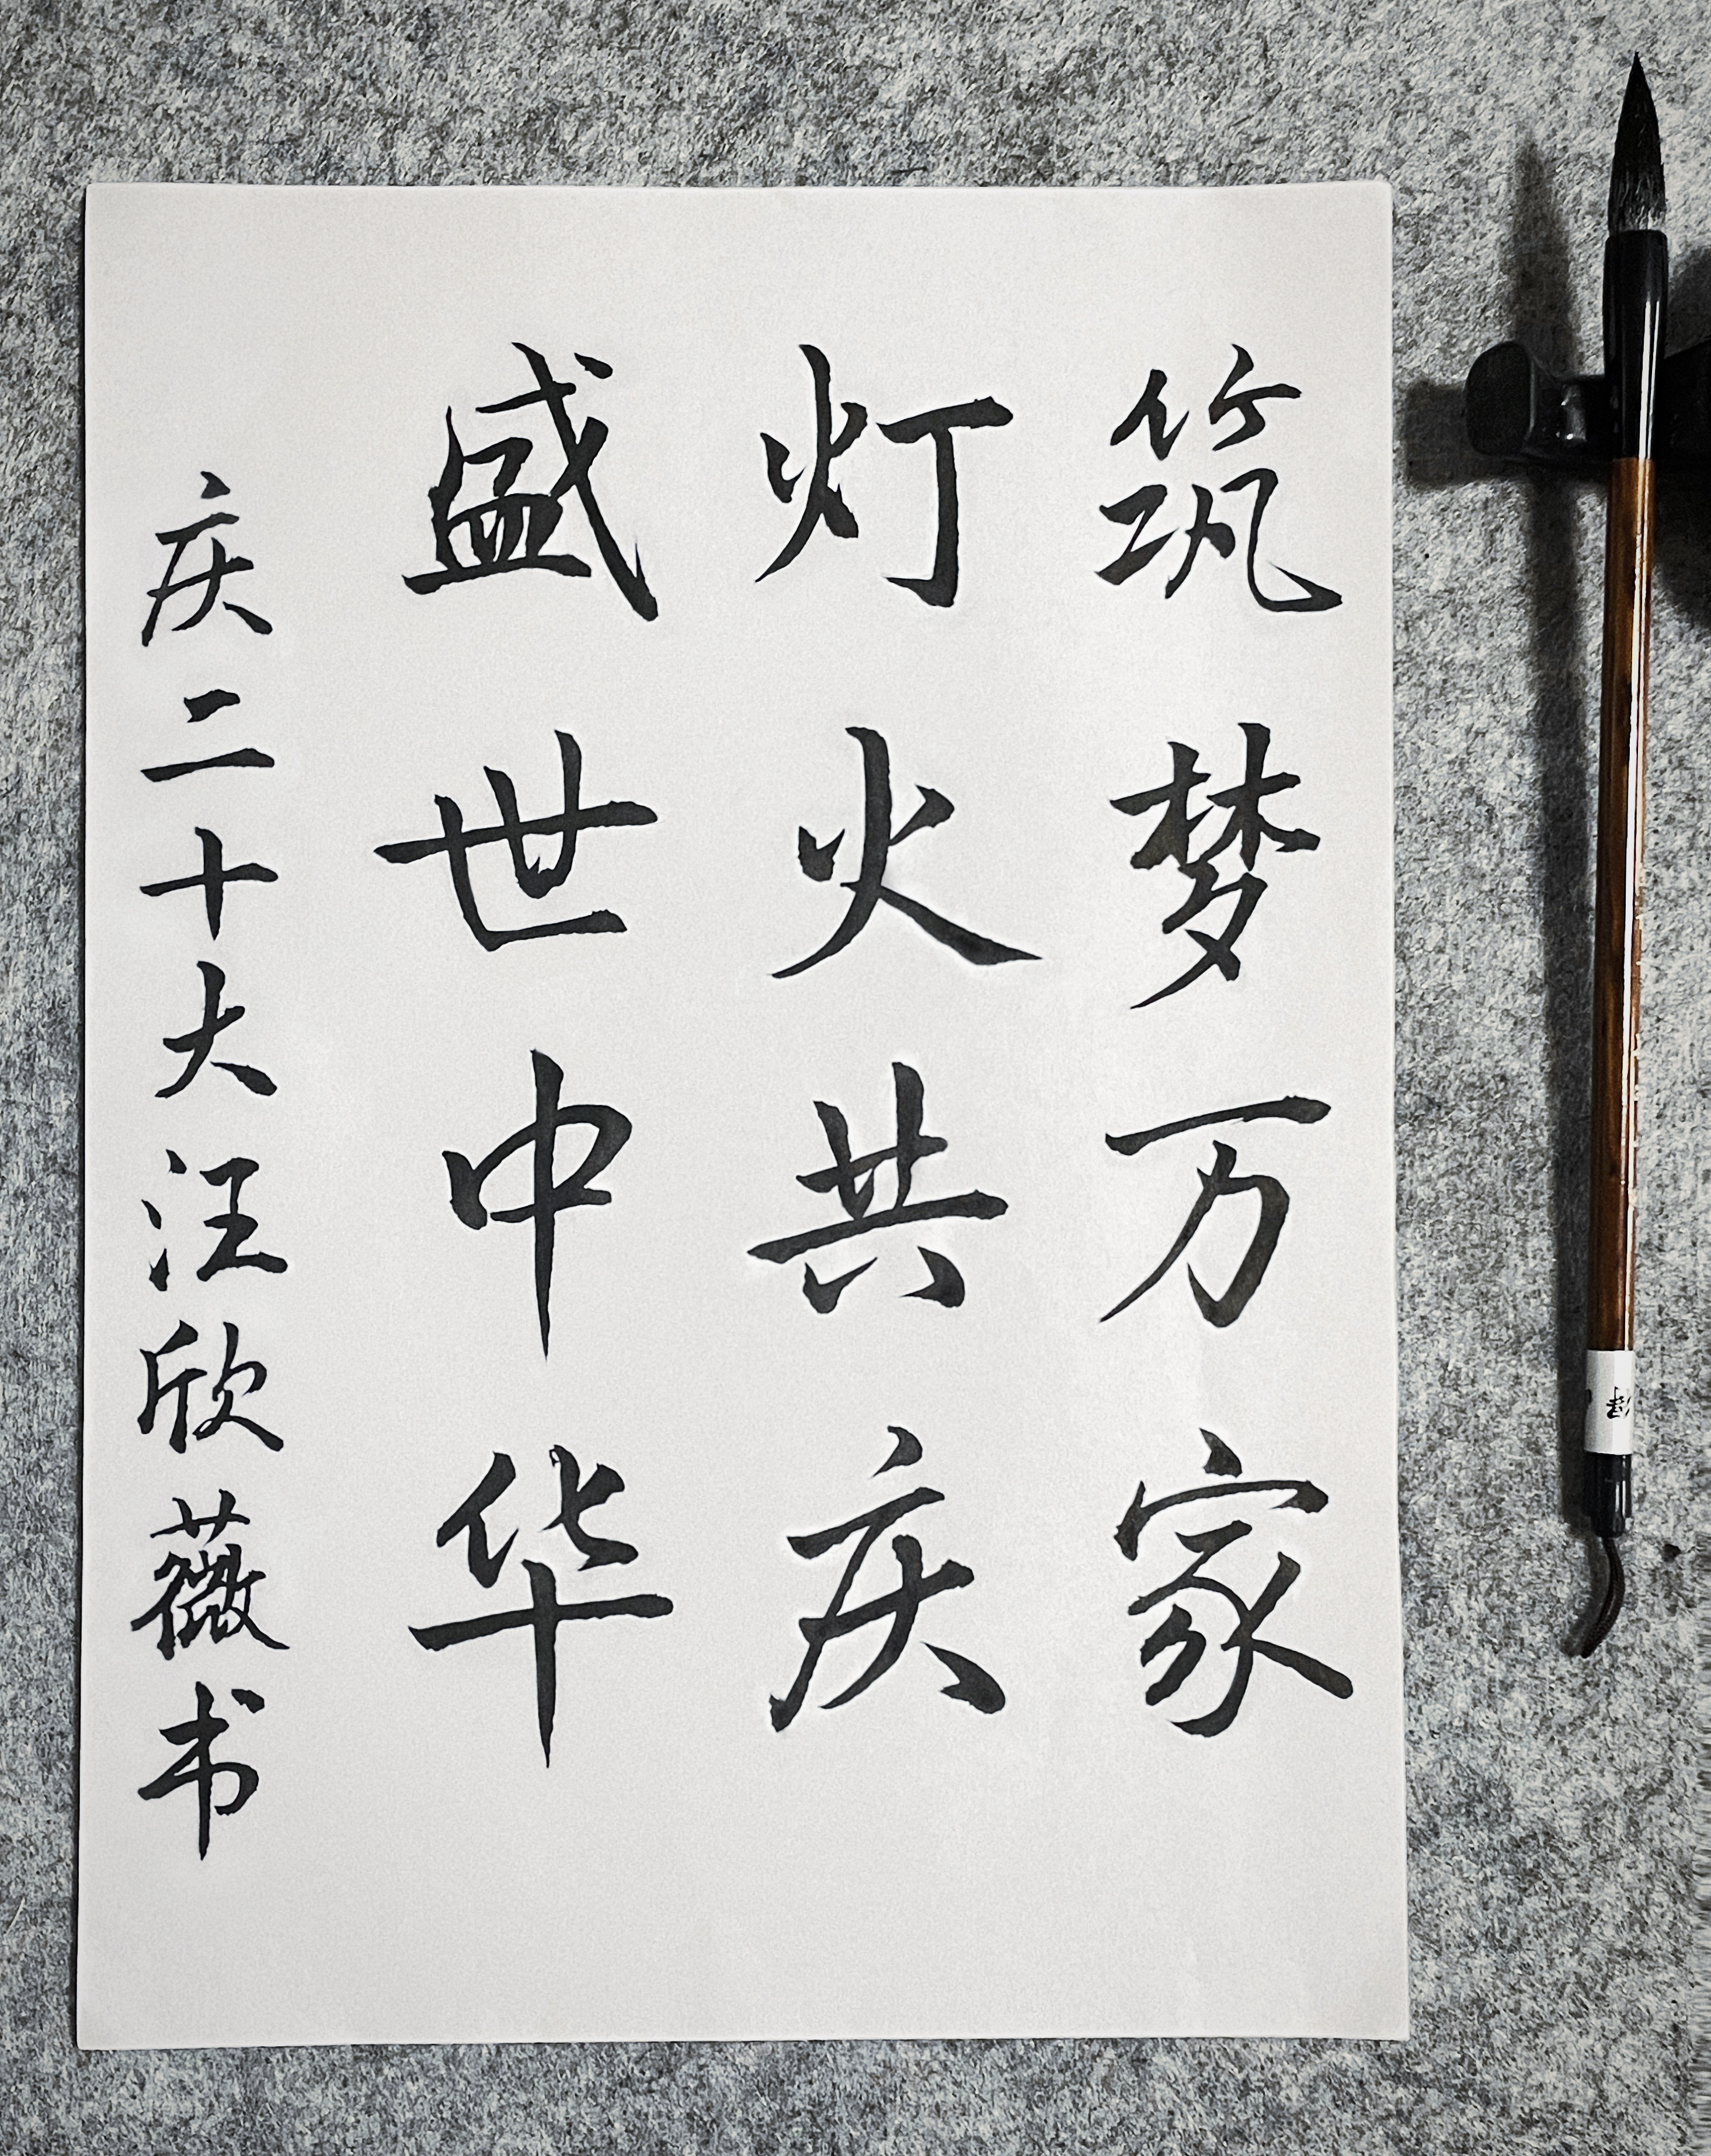 筑梦万家
灯火共庆
盛世中华
庆二十大汪欣薇书